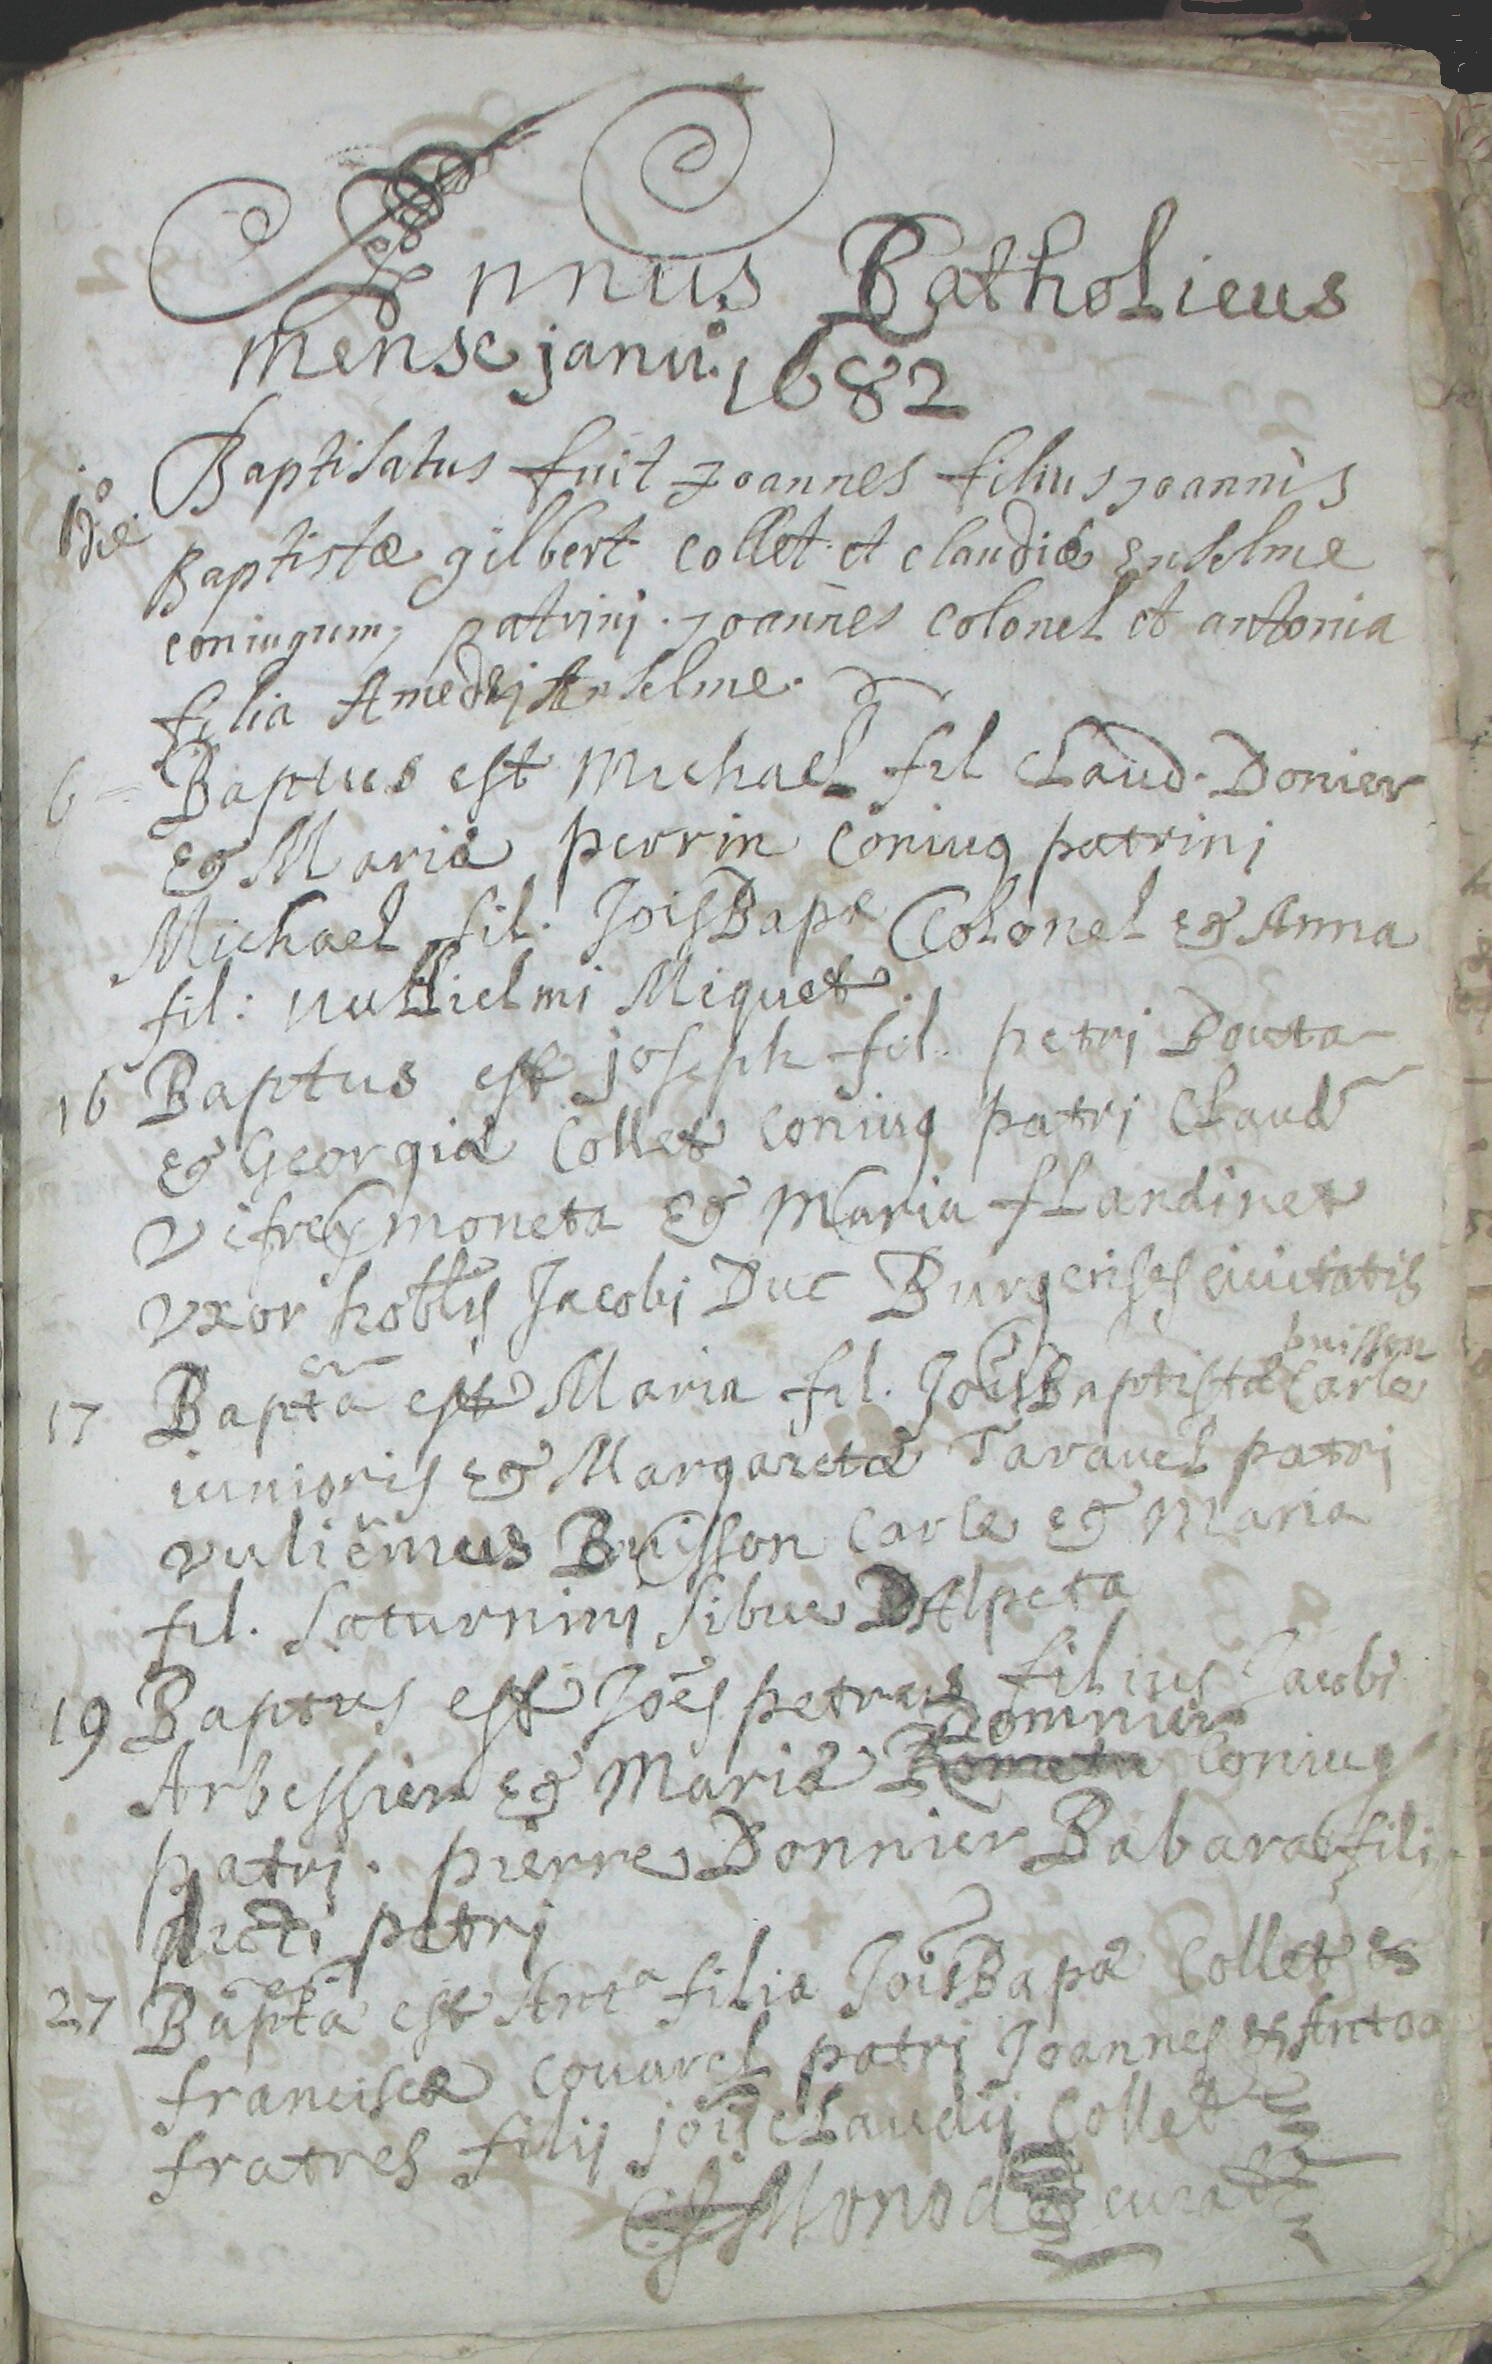 Annus Catholicus
Mense janu. 1682
1º die Baptisatus fuit Joannes filius joannis
Baptistæ gilbert collet et claudiæ Enselme
coniugum, patrini. joannes colonel et antonia
filia Amedej Anselme.
6 Baptus est Michael fil Claud. Donier
& Mariæ perrin Coniug patrinj
Michael fil. JoisBapæ Colonel & Anna
fil: Vullielmi Miquet
16 Baptus est joseph fil. petrj Bouta
& Georgiæ Collet Coniug patrj Claud
moneta & Maria flandinet
Vxor Jacobj Duc Burgenses ciuitatis
buisson
17 Bapta est Maria fil. JoisBaptistæ Carle
iunioris & Margaretæ Tarauel patrj
vuliemus Buisson Carle & Maria
fil. Saturninj Sibue DAlpeta
19 Baptus est Joes petrus filius Jacobi
Donnier
Arbessier & Mariæ Coniug
patrj. pierre Donnier Babara fili
dicti petrj
27 Bapta est Anta filia JoisBapæ Collet &
franciscæ Couurel patrj Joannes & Antoa
fratres filij jois Claudij Collet
Monod curat